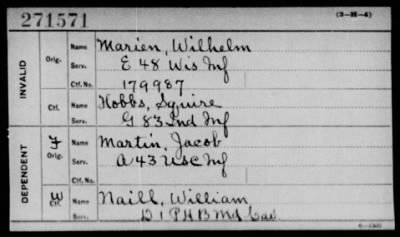 271571 (3-H-4)
INVALID
Orig.
Name Marien, Wilhelm
Serv. E 48 Wis Inf
Ctf. No. 179987
Ctf.
Name Hobbs, Squire
Serv. G 83 Ind Inf
DEPENDENT
F
Orig.
Name Martin, Jacob
Serv. A 43 USC Inf
Ctf. No.
W
Ctf.
Name Naill, William
Serv. D 1 P H B Md Cav